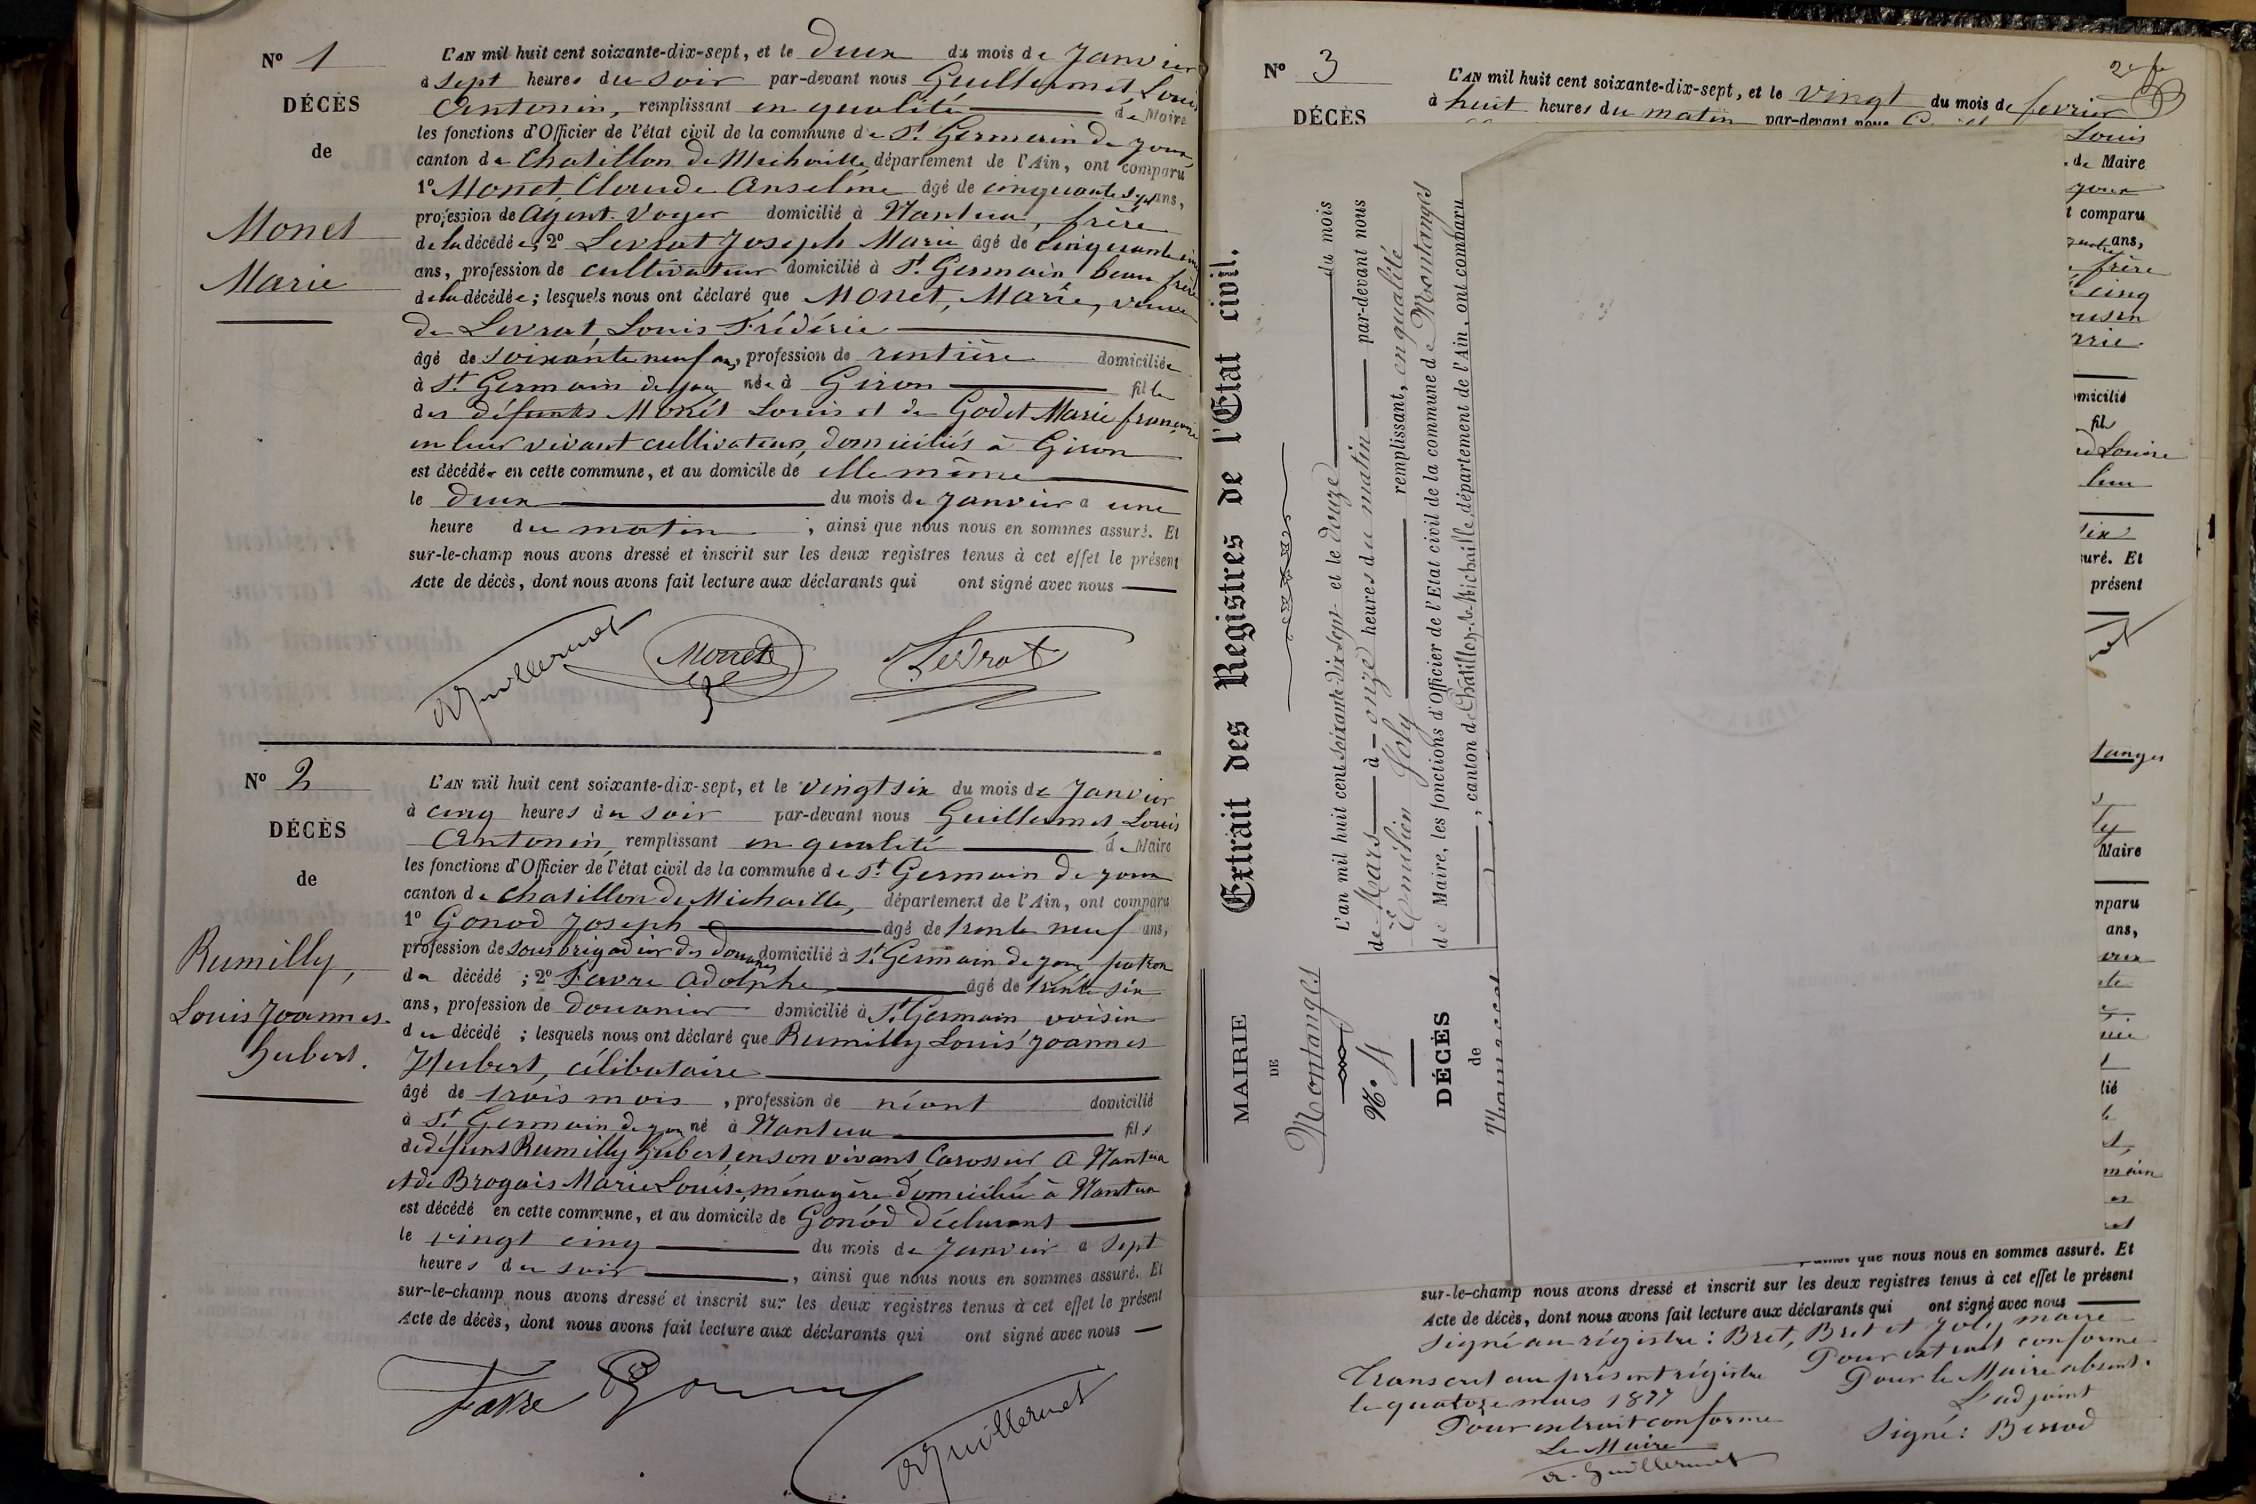 N° 1
DÉCÈS
de
Monet
Marie
L'AN mil huit cent soixante-dix-sept, et le deux du mois de Janvier
à sept heures du soir par-devant nous Guillermet Louis
Antonin, remplissant en qualité de Maire
les fonctions d'Officier de l'état civil de la commune de St Germain de joux,
canton de Chatillon de Michaille département de l'Ain, ont comparu
1° Monet, Claude Anselme âgé de cinquante sept ans,
profession de Agent-Voyer domicilié à Nantua, frère
de la décédée; 2° Levrat Joseph Marie âgé de cinquante cinq
ans, profession de cultivateur domicilié à St Germain beau frère
de la décédée; lesquels nous ont déclaré que Monet, Marie, veuve
de Levrat, Louis Frédéric
âgé de soixante neuf ans, profession de rentière domiciliée
à St Germain de joux née à Giron fille
des défunts Monet Louis et de Godet Marie françoise
en leur vivant cultivateurs, domiciliés à Giron
est décédée en cette commune, et au domicile de elle même
le deux du mois de janvier à une
heure du matin ; ainsi que nous nous en sommes assuré. Et
sur-le-champ nous avons dressé et inscrit sur les deux registres tenus à cet effet le présent
Acte de décès, dont nous avons fait lecture aux déclarants qui ont signé avec nous
A Guillermet Monet Levrat
N° 2
DÉCÈS
de
Rumilly,
Louis Joannes
hubert.
L'AN mil huit cent soixante-dix-sept, et le vingt six du mois de Janvier
à cinq heures du soir par-devant nous Guillermet Louis
Antonin, remplissant en qualité de Maire
les fonctions d'Officier de l'état civil de la commune de St Germain de joux
canton de Chatillon de Michaille, département de l'Ain, ont comparu
1° Gonod Joseph âgé de trente neuf ans,
profession de sous brigadier des douanes domicilié à St Germain de joux patron
du décédé ; 2° Favre Adolphe âgé de trente six
ans, profession de douanier domicilié à St Germain voisin
du décédé ; lesquels nous ont déclaré que Rumilly Louis Joannes
Hubert, célibataire
âgé de trois mois , profession de néant domicilié
à St Germain de joux né à Nantua fils
de défunt Rumilly hubert en son vivant Carossier à Nantua
et de Brogais Marie Louise, ménagère domiciliée à Nantua
est décédé en cette commune, et au domicile de Gonod déclarant
le vingt cinq du mois de Janvier à sept
heures du soir , ainsi que nous nous en sommes assuré. Et
sur-le-champ nous avons dressé et inscrit sur les deux registres tenus à cet effet le présent
Acte de décès, dont nous avons fait lecture aux déclarants qui ont signé avec nous
Favre Gonod
A Guillermet
N° 3
DÉCÈS
L'AN mil huit cent soixante-dix-sept, et le vingt du mois de fevrier
à huit heures du matin par-devant nous
Louis
de Maire
joux
t comparu
ans,
frère
cinq
domicilié
fils
Louise
leur
suré. Et
présent
Extrait des Registres de l'Etat civil.
MAIRIE
DE
Montanges
N° 4
DÉCÈS
de
L'an mil huit cent soixante-dix-sept et le douze du mois
de Mars à onze heures du matin par-devant nous
Emilien Joly remplissant, en qualité
de Maire, les fonctions d'Officier de l'Etat civil de la commune de Montanges
, canton de Châtillon-de-Michaille, département de l'Ain, ont comparu
tanges
Maire
mparu
ans,
lié
main
que nous nous en sommes assuré. Et
sur-le-champ nous avons dressé et inscrit sur les deux registres tenus à cet effet le présent
Acte de décès, dont nous avons fait lecture aux déclarants qui ont signé avec nous
Signé au régistre : Bret, Bret et Joly maire
Pour extrait conforme
Transcrit au présent régistre Pour le Maire absent.
le quatorze mars 1877 L'adjoint
Pour extrait conforme Signé : Berrod
Le Maire
A. Guillermet